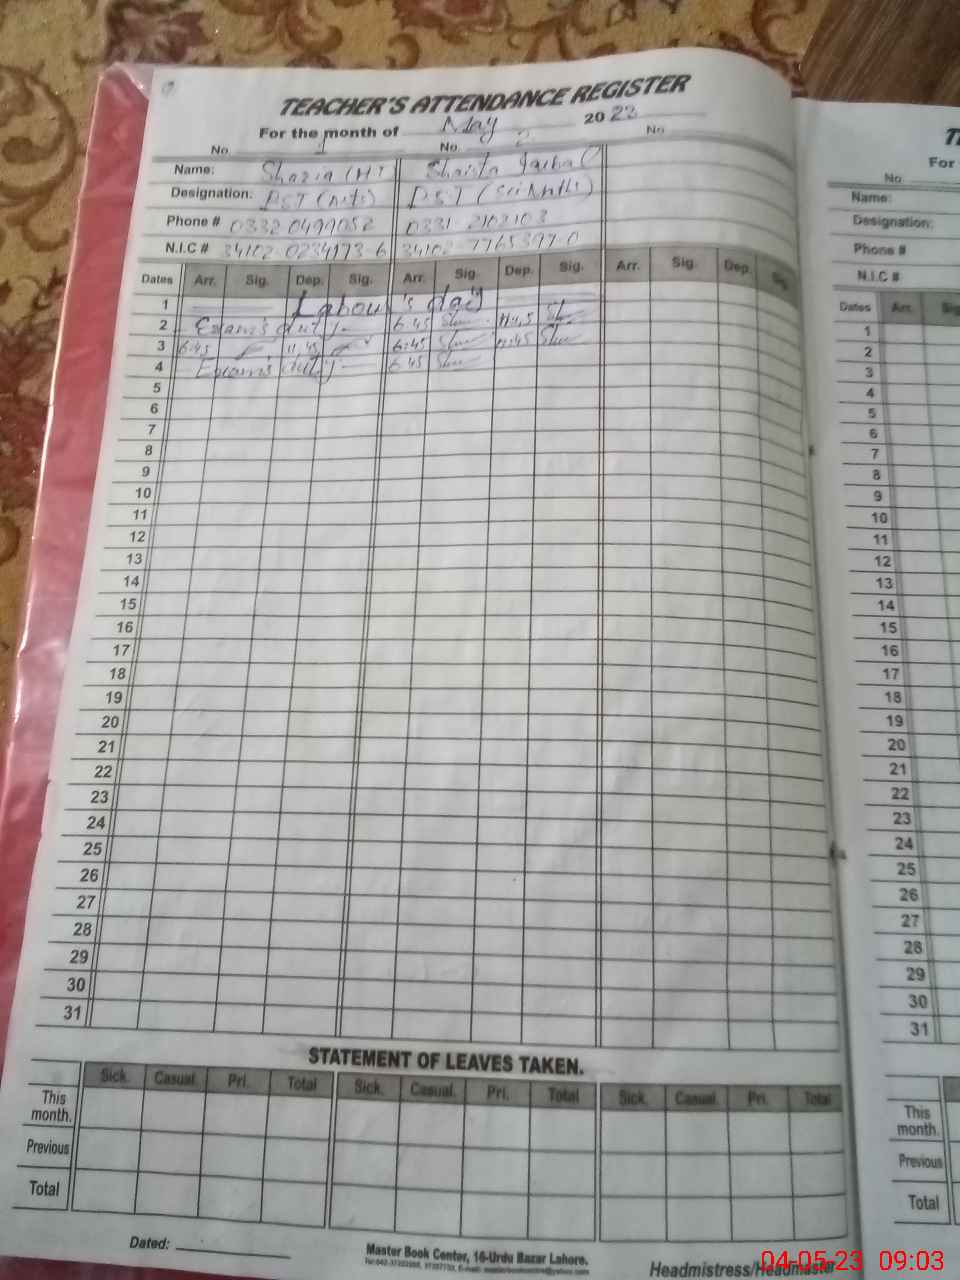 TEACHER'S ATTENDANCE REGISTER
For the month of May 2023
No. 1 No. 2 No.
Name: Shazia (HT) Shaista Iqbal
Designation: PST (Arts) PST (Sci Math)
Phone # 0332 0499052 0331-2103103
N.I.C # 34102-0234173-6 34102-7765397-0
Dates Arr. Sig. Dep. Sig. Arr. Sig. Dep. Sig. Arr. Sig. Dep. Sig.
1 Labour's day
2 Exams duty 6:45 11:45
3 6:45 11:45 6:45 11:45
4 Exams duty 6:45
5
6
7
8
9
10
11
12
13
14
15
16
17
18
19
20
21
22
23
24
25
26
27
28
29
30
31
STATEMENT OF LEAVES TAKEN.
Sick. Casual. Pri. Total Sick. Casual. Pri. Total Sick. Casual. Pri. Total
This month.
Previous
Total
Dated:
Master Book Center, 16-Urdu Bazar Lahore.
Headmistress/Headmaster
For
No
Name:
Designation:
Phone #
N.I.C #
Dates Arr.
1
2
3
4
5
6
7
8
9
10
11
12
13
14
15
16
17
18
19
20
21
22
23
24
25
26
27
28
29
30
31
This month.
Previous
Total
04-05-23 09:03